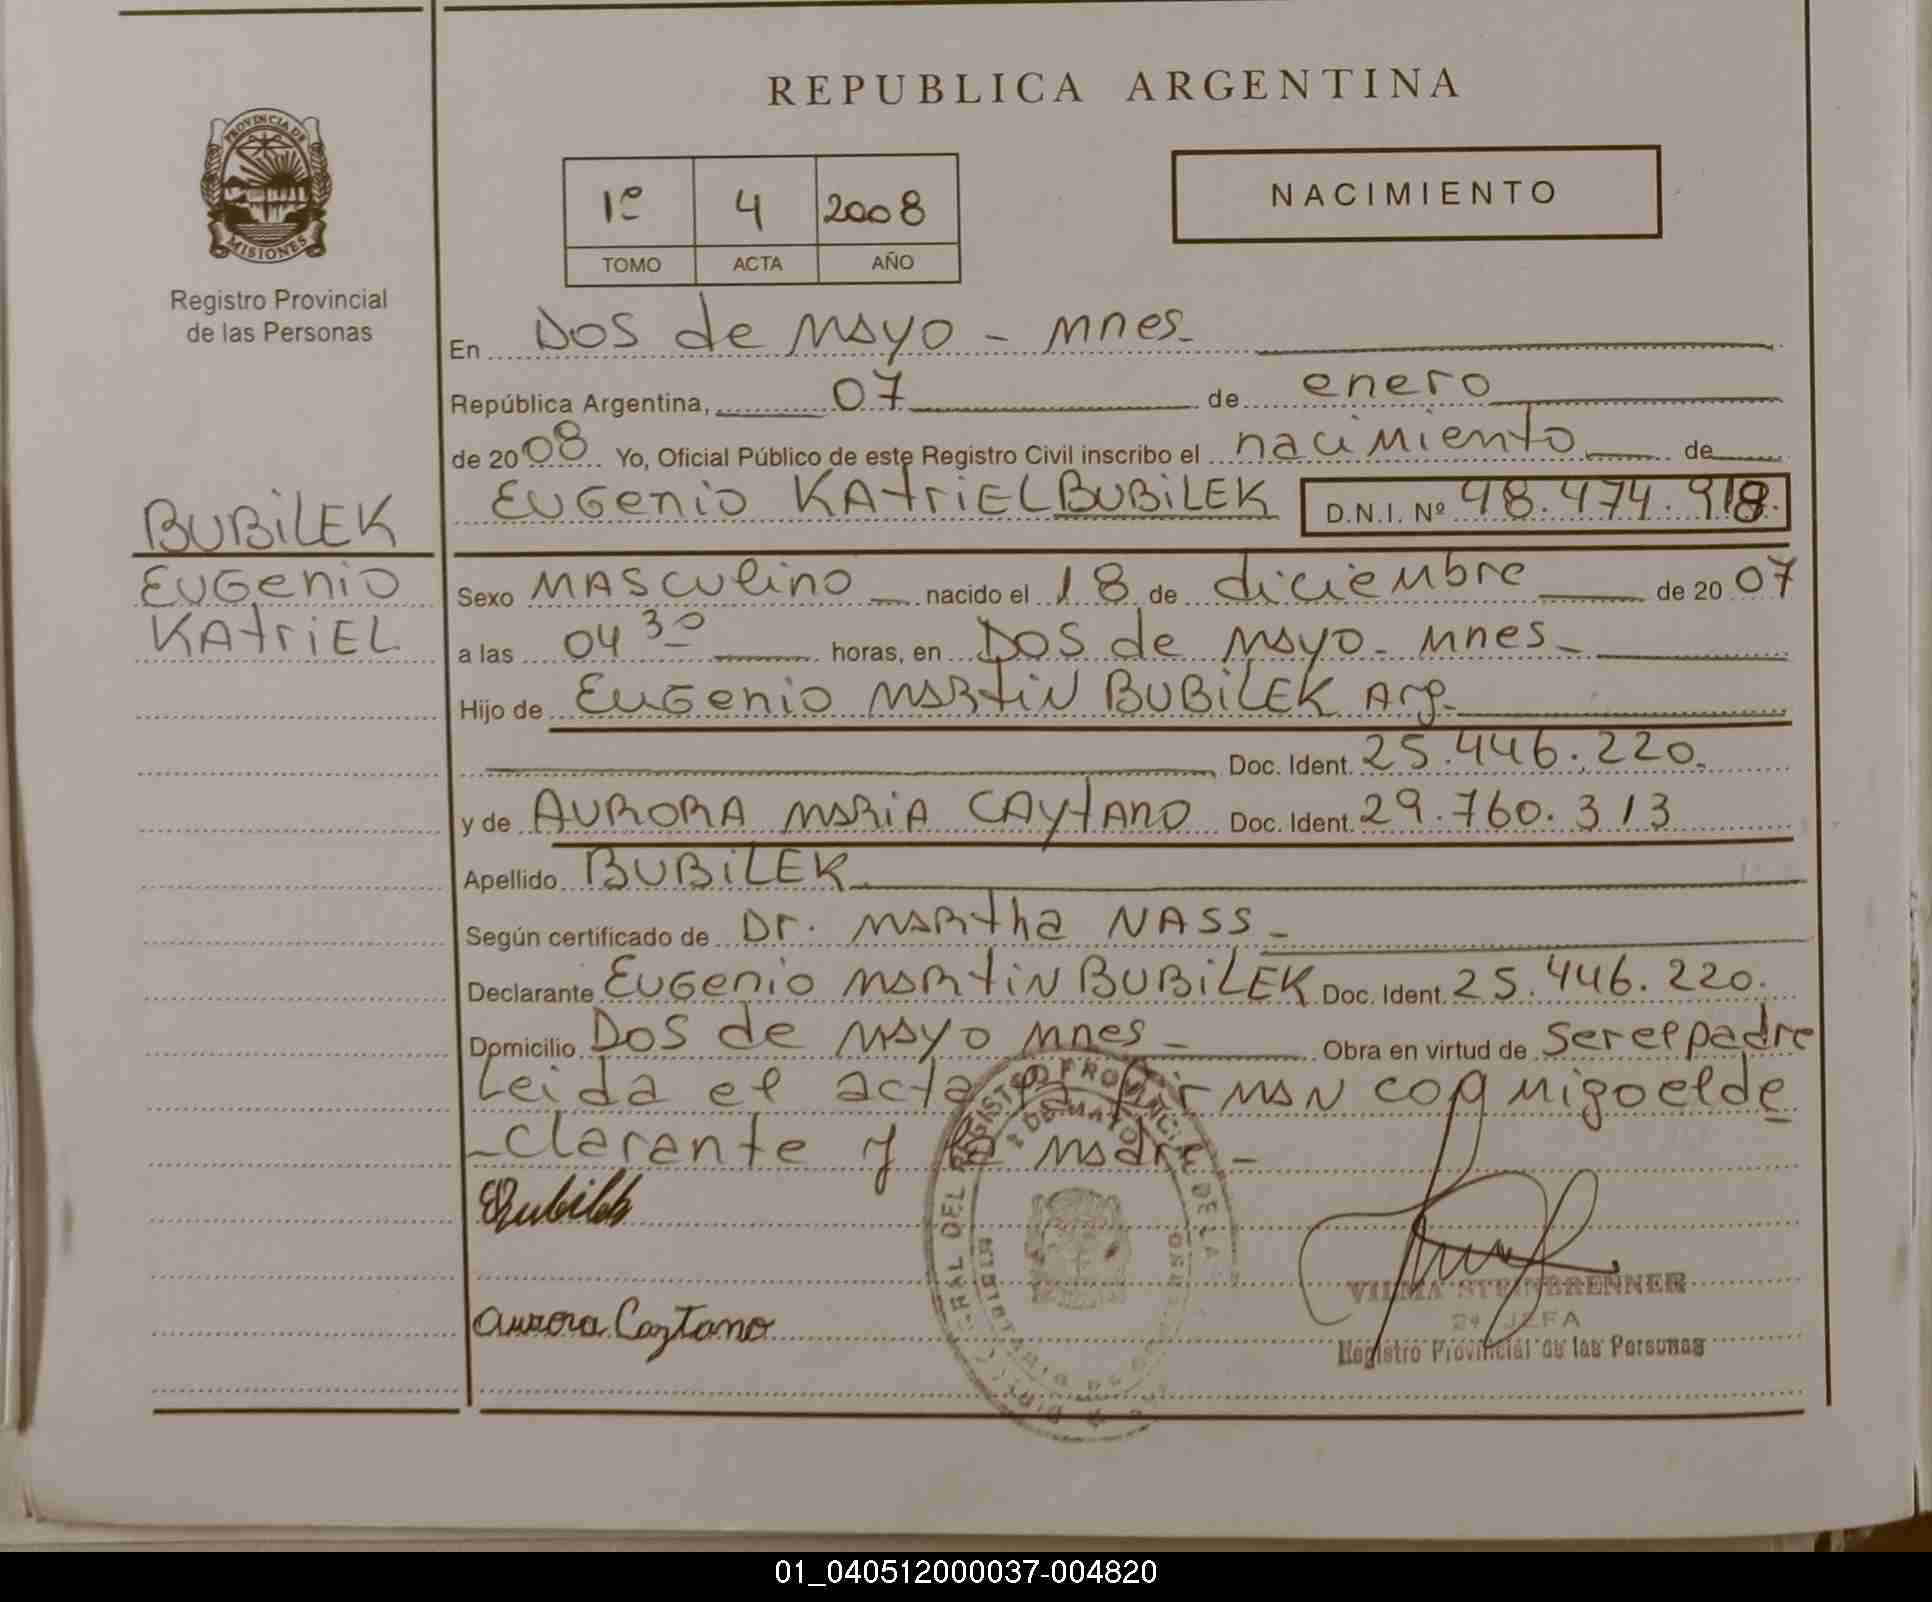 REPUBLICA ARGENTINA
PROVINCIA DE
MISIONES
Registro Provincial
de las Personas
1º 4 2008
TOMO ACTA AÑO
NACIMIENTO
En Dos de Mayo - Mnes-
República Argentina, 07 de enero
de 2008 Yo, Oficial Público de este Registro Civil inscribo el nacimiento de
EUGENIO KATRIEL BUBILEK D.N.I. Nº 48.474.918.
BUBILEK
EUGENIO
KATRIEL
Sexo MASCULINO nacido el 18 de diciembre de 2007
a las 04 30 horas, en Dos de Mayo - Mnes-
Hijo de EUGENIO MARTIN BUBILEK Arg.
Doc. Ident. 25.446.220.
y de AURORA MARIA CAYTANO Doc. Ident. 29.760.313
Apellido BUBILEK
Según certificado de Dr. Martha NASS-
Declarante EUGENIO MARTIN BUBILEK Doc. Ident. 25.446.220.
Domicilio Dos de Mayo Mnes- Obra en virtud de ser el padre
Leida el acta la firman conmigo el de
-clarante y la madre-
EBubilek
Aurora Caytano
VILMA STEINBRENNER
2ª JEFA
Registro Provincial de las Personas
01_040512000037-004820